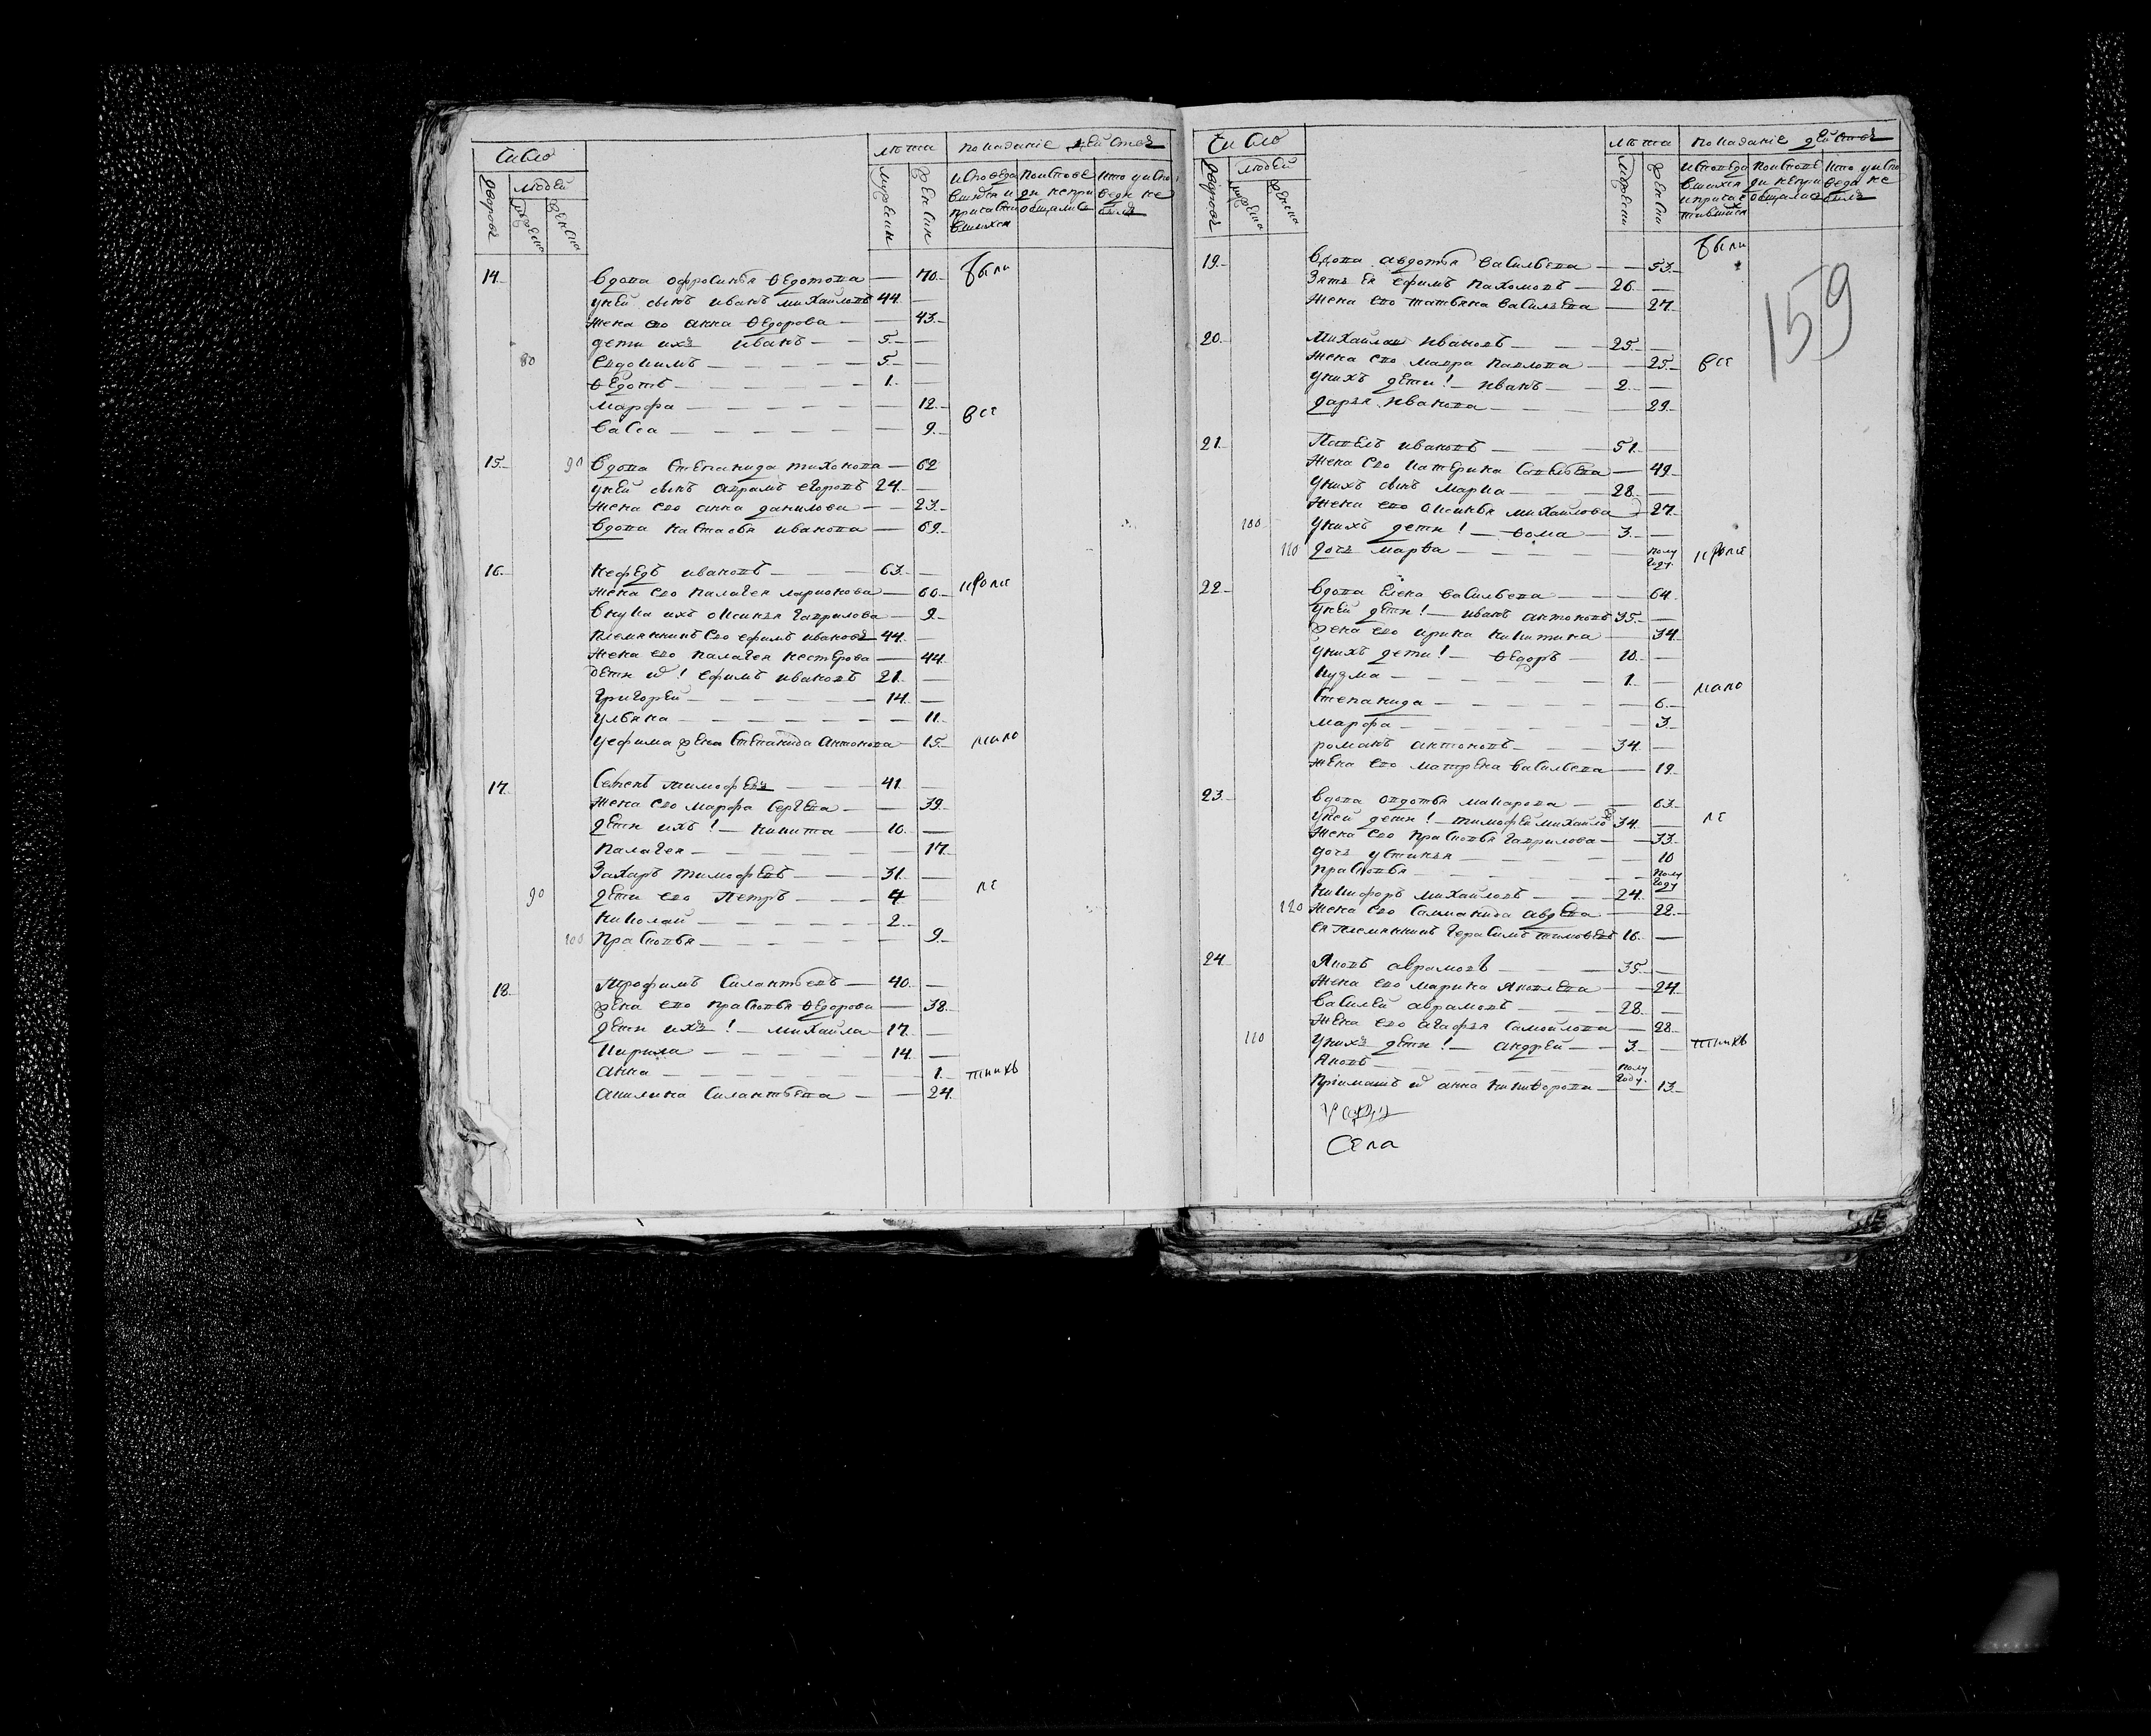 Число
лѣта
показаніе действъ
дворовъ
людей
мужеска
женска
мужески
женски
исповеда
вшихся и
причасти
вшихся
поисповѣ
ди непри
общался
кто уиспо
веди не
былъ
были
14. вдова офросинья Ѳедотова — 70.
уней сынъ иванъ михайловъ 44. —
жена его анна Ѳедорова — — 43.
дети ихъ иванъ — 5. —
80
евдокимъ — 5. —
Ѳедотъ — 1. —
марфа — 12.
все
васса — 9.
15. 90 вдова степанида тихонова — 62
уней сынъ аврамъ егоровъ 24. —
жена его анна данилова — 23.
вдова настасья иванова — 69.
16. нефедъ ивановъ — 63. —
жена его палагея ларионова — 60.
кроме
внука ихъ оксинья гаврилова — 9.
племянникъ его ефимъ ивановъ 44. —
жена его палагея нестерова — 44
дети ихъ! ефимъ ивановъ 21. —
григорей — 14. —
ульяна — 11.
уефима жена степанида антонова 15.
мало
17. семенъ тимофѣевъ — 41. —
жена его марфа сергѣева — 39.
дети ихъ! — никита — 10. —
палагея — 17.
захаръ тимофѣевъ — 31. —
ле
90 дети его петръ — 4 —
николай — 2. —
100 прасковья — 9.
18. трофимъ силантьевъ — 40. —
жена его прасковья Ѳедорова — 38.
дети ихъ! — михайла — 17. —
кирила — 14. —
анна — 1.
тнихъ
акилина силантьева — 24.
Число
лѣта
показаніе действъ
дворовъ
людей
мужеска
женска
мужески
женски
исповеда
вшихся
и причас
тившихся
поисповѣ
ди непри
общался
кто уиспо
веди не
былъ
были
159
19. вдова авдотья васильева — 53.
зять ея ефимъ пахомовъ — 26. —
жена его татьяна васильева — 27.
20. михайла ивановъ — 25. —
жена его мавра павлова — 25.
все
унихъ дети! — иванъ — 2. —
дарья иванова — 29.
21. павелъ ивановъ — 51. —
жена его катерина савельева — 49.
унихъ сынъ марка — 28. —
жена его оксинья михайлова — 27.
100 унихъ дети! — Ѳома — 3. —
110 дочь марѳа — полу году.
кроме
22. вдова елена васильева — 64.
уней дети! — иванъ антоновъ 35. —
жена его ирина никитина — 34
унихъ дети! — Ѳедоръ — 10. —
кузма — 1. —
мало
степанида — 6.
марфа — 3.
романъ антоновъ — 34. —
жена его матрена васильева — 19.
23. вдова овдотья макарова — 63.
уней дети! — тимофей михайловъ 34. —
ле
жена его прасковья гаврилова — 33.
дочь устинья — 10
прасковья — полу году
никифоръ михайловъ — 24. —
120 жена его саламанида авдѣева — 22.
ея племянникъ герасимъ тимоѳѣевъ 16. —
24. яковъ аврамовъ — 35. —
жена его марина яковлева — 24.
василей аврамовъ — 28. —
жена его агафья самойлова — 28.
110 унихъ дети! — андрей — 3. —
тнихъ
яковъ — полу году.
пріимышъ ихъ анна никиѳорова — 13.
Села